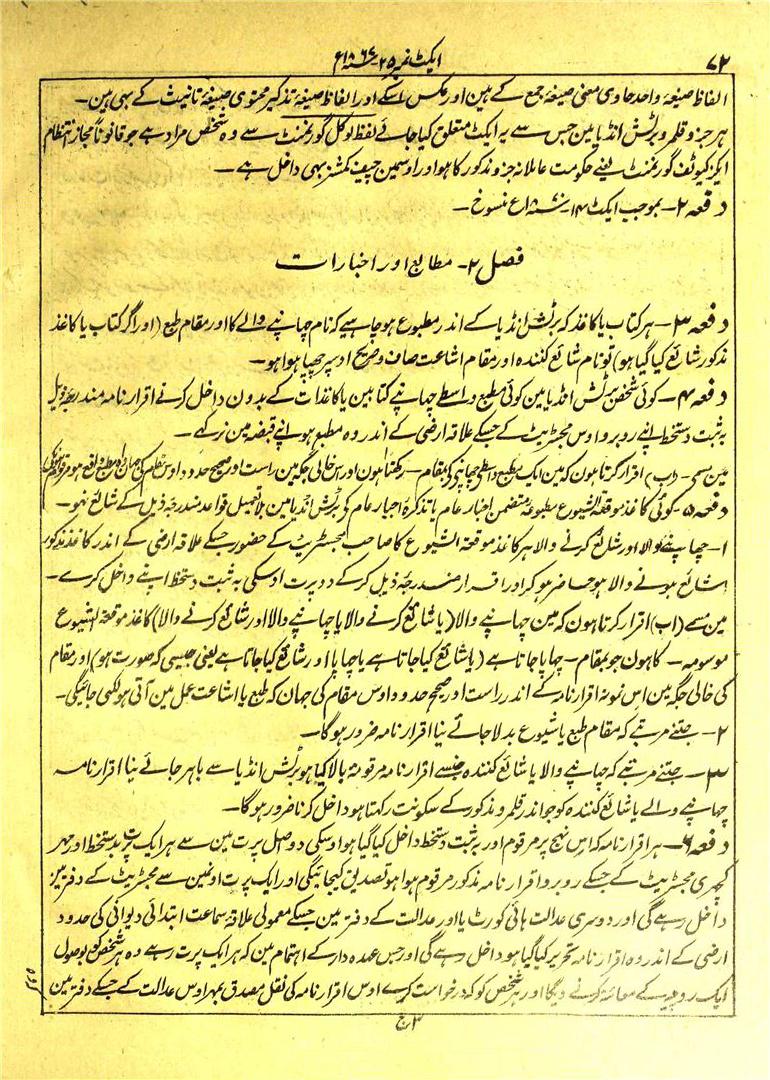 ٧٢
ایکٹ نمبر ٢٥ ۔ سنہ ١٨٦٧ ع
الفاظ صیغۂ واحد حاوی معنی صیغۂ جمع کے ہین اور عکس اسکے اور الفاظ صیغۂ تذکیر محتوی صیغۂ تانیث کے بھی ہین ۔
ہر جزو قلمرو برٹش انڈیا مین جس سے یہ ایکٹ متعلق کیا جائے لفظ لوکل گورنمنٹ سے وہ شخص مراد ہے جو قانوناً مجاز انتظام
ایکزکیوٹف گورنمنٹ یعنے حکومت عاملانہ جزو مذکور کا ہو اور اوسمین چیف کمشنر بھی داخل ہے ۔
دفعہ ٢ ۔ بموجب ایکٹ ١٤ ۔ سنہ ع منسوخ ۔
فصل ٢ ۔ مطابع اور اخبارات
دفعہ ٣ ۔ ہر کتاب یا کاغذ کہ برٹش انڈیا کے اندر مطبوع ہو چاہیے کہ نام چھاپنے والے کا اور مقام طبع (اور اگر کتاب یا کاغذ
مذکور شائع کیا گیا ہو) تو نام شائع کنندہ اور مقام اشاعت صاف و صریح اوسپر چھپا ہوا ہو ۔
دفعہ ٤ ۔ کوئی شخص برٹش انڈیا مین کوئی مطبع واسطے چھاپنے کتابین یا کاغذات کے بدون داخل کرنے اقرارنامہ مندرجۂ ذیل
بہ ثبت دستخط اپنے روبرو اوس مجسٹریٹ کے جسکے علاقہ ارضی کے اندر وہ مطبع ہو اپنے قبضہ مین نرکھے ۔
مین مسمی ۔ (اب) اقرار کرتا ہون کہ مین ایک مطبع واسطے چھاپنے کے بمقام ۔ رکھتا ہون اور اس خالی جگہ مین راست اور صحیح حدود اوس مقام کی جہان وہ مطبع واقع ہو مرقوم
دفعہ ٥ ۔ کوئی کاغذ موقتۃ الشیوع مطبوعہ متضمن اخبار عام یا تذکرۂ اخبار عام کے برٹش انڈیا مین بلا تعمیل قواعد مندرجۂ ذیل کے شائع نہو ۔
١ ۔ چھاپنے والا اور شائع کرنے والا ہر کاغذ موقتۃ الشیوع کا صاحب مجسٹریٹ کے حضور جسکے علاقہ ارضی کے اندر کاغذ مذکور
شائع ہونے والا ہو حاضر ہو کر اور اقرار مندرجۂ ذیل کرکے دو پرت اوسکی بہ ثبت دستخط اپنے داخل کرے ۔
مین مسمے (اب) اقرار کرتا ہون کہ مین چھاپنے والا (یا شائع کرنے والا یا چھاپنے والا اور شائع کرنے والا) کاغذ موقتۃ الشیوع
موسومہ ۔ کا ہون جو بمقام ۔ چھاپا جاتا ہے (یا شائع کیا جاتا ہے یا چھاپا اور شائع کیا جاتا ہے یعنی جیسی کہ صورت ہو) اور مقام
کی خالی جگہ مین اس نمونہ اقرارنامہ کے اندر راست اور صحیح حدود اوس مقام کی جہان کہ طبع یا اشاعت عمل مین آتی ہو لکھی جائیگی ۔
٢ ۔ جتنے مرتبے کہ مقام طبع یا شیوع بدلا جائے نیا اقرارنامہ ضرور ہوگا ۔
٣ ۔ جتنے مرتبے کہ چھاپنے والا یا شائع کنندہ جسنے اقرارنامہ مرقومۂ بالا کیا ہو برٹش انڈیا سے باہر جائے نیا اقرارنامہ
چھاپنے والے یا شائع کنندہ کو جو اندر قلمرو مذکور کے سکونت رکھتا ہو داخل کرنا ضرور ہوگا ۔
دفعہ ٦ ۔ ہر اقرارنامہ کہ اس نہج پر مرقوم اور بہ ثبت دستخط داخل کیا گیا ہو اوسکی دو اصل پرت مین سے ہر ایک پرت پر دستخط اور مہر
کچہری مجسٹریٹ کے جسکے روبرو اقرارنامہ مذکور مرقوم ہوا ہو تصدیق کیجائیگی اور ایک پرت اونمین سے مجسٹریٹ کے دفتر مین
داخل رہے گی اور دوسری عدالت ہائی کورٹ یا اور عدالت کے دفتر مین جسکے معمولی علاقۂ سماعت ابتدائی دیوانی کی حدود
ارضی کے اندر وہ اقرارنامہ تحریر کیا گیا ہو داخل رہے گی اور جس عہدہ دار کے اہتمام مین کہ ہر ایک پرت رہے وہ ہر شخص کو بوصول
ایک روپیہ کے معائنہ کرنے دیگا اور ہر شخص کو کہ درخواست کرے اوس اقرارنامہ کی نقل مصدق بمہر اوس عدالت کے جسکے دفتر مین
٣ ج